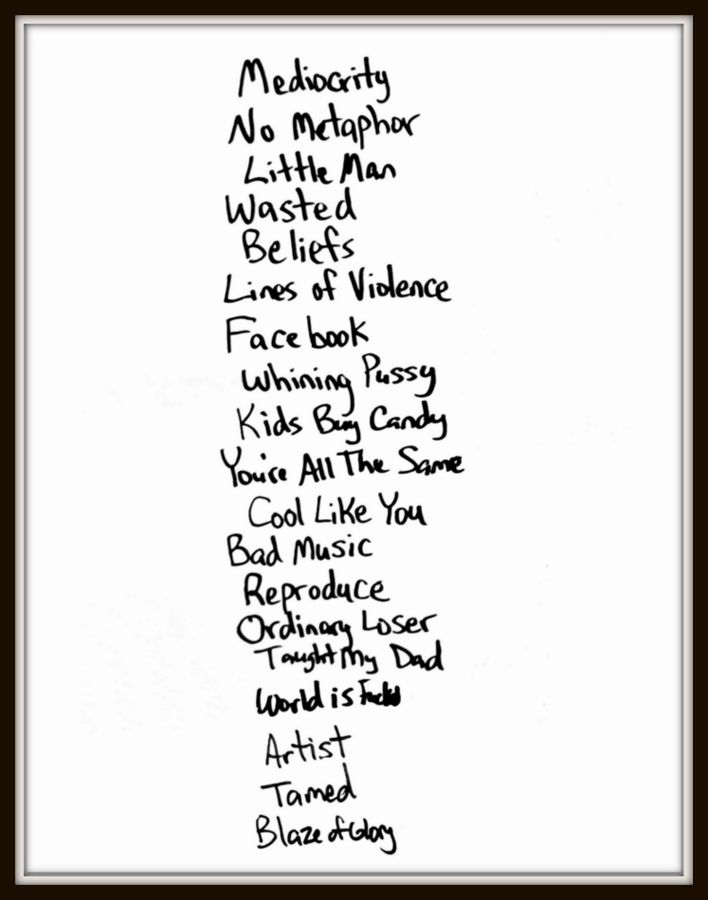 Mediocrity
No Metaphor
Little Man
Wasted
Beliefs
Lines of Violence
Facebook
Whining Pussy
Kids Buy Candy
You're All The Same
Cool Like You
Bad Music
Reproduce
Ordinary Loser
Taught My Dad
World is Fucked
Artist
Tamed
Blaze of Glory